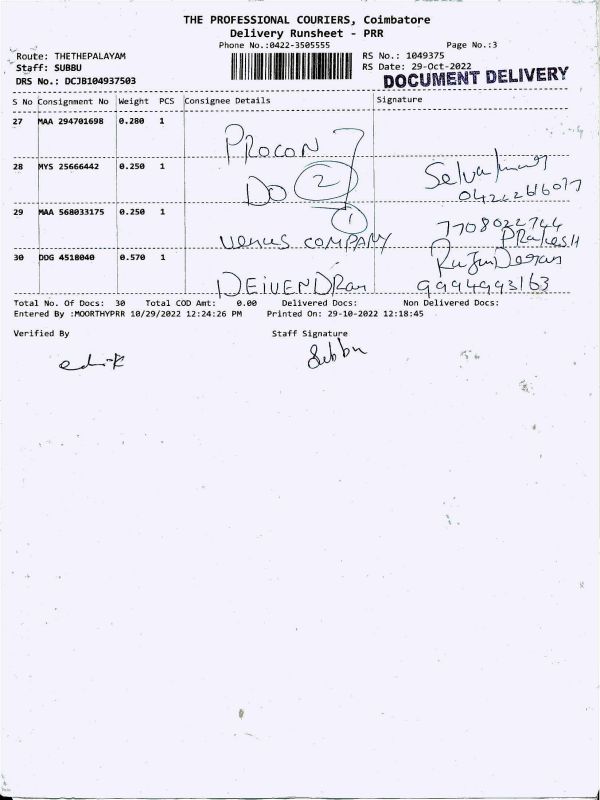 THE PROFESSIONAL COURIERS, Coimbatore
Delivery Runsheet - PRR
Phone No.:0422-3505555 Page No.:3
Route: THETHEPALAYAM RS No.: 1049375
Staff: SUBBU RS Date: 29-Oct-2022
DRS No.: DCJB104937503 DOCUMENT DELIVERY
S No Consignment No Weight PCS Consignee Details Signature
27 MAA 294701698 0.280 1
PROCON
28 MYS 25666442 0.250 1
DO 2
29 MAA 568033175 0.250 1
1 7708022744
VENUS COMPANY PRakesH
30 DDG 4518040 0.570 1
DEIVENDRan 9994993163
Total No. Of Docs: 30 Total COD Amt: 0.00 Delivered Docs: Non Delivered Docs:
Entered By :MOORTHYPRR 10/29/2022 12:24:26 PM Printed On: 29-10-2022 12:18:45
Verified By Staff Signature
Subbu